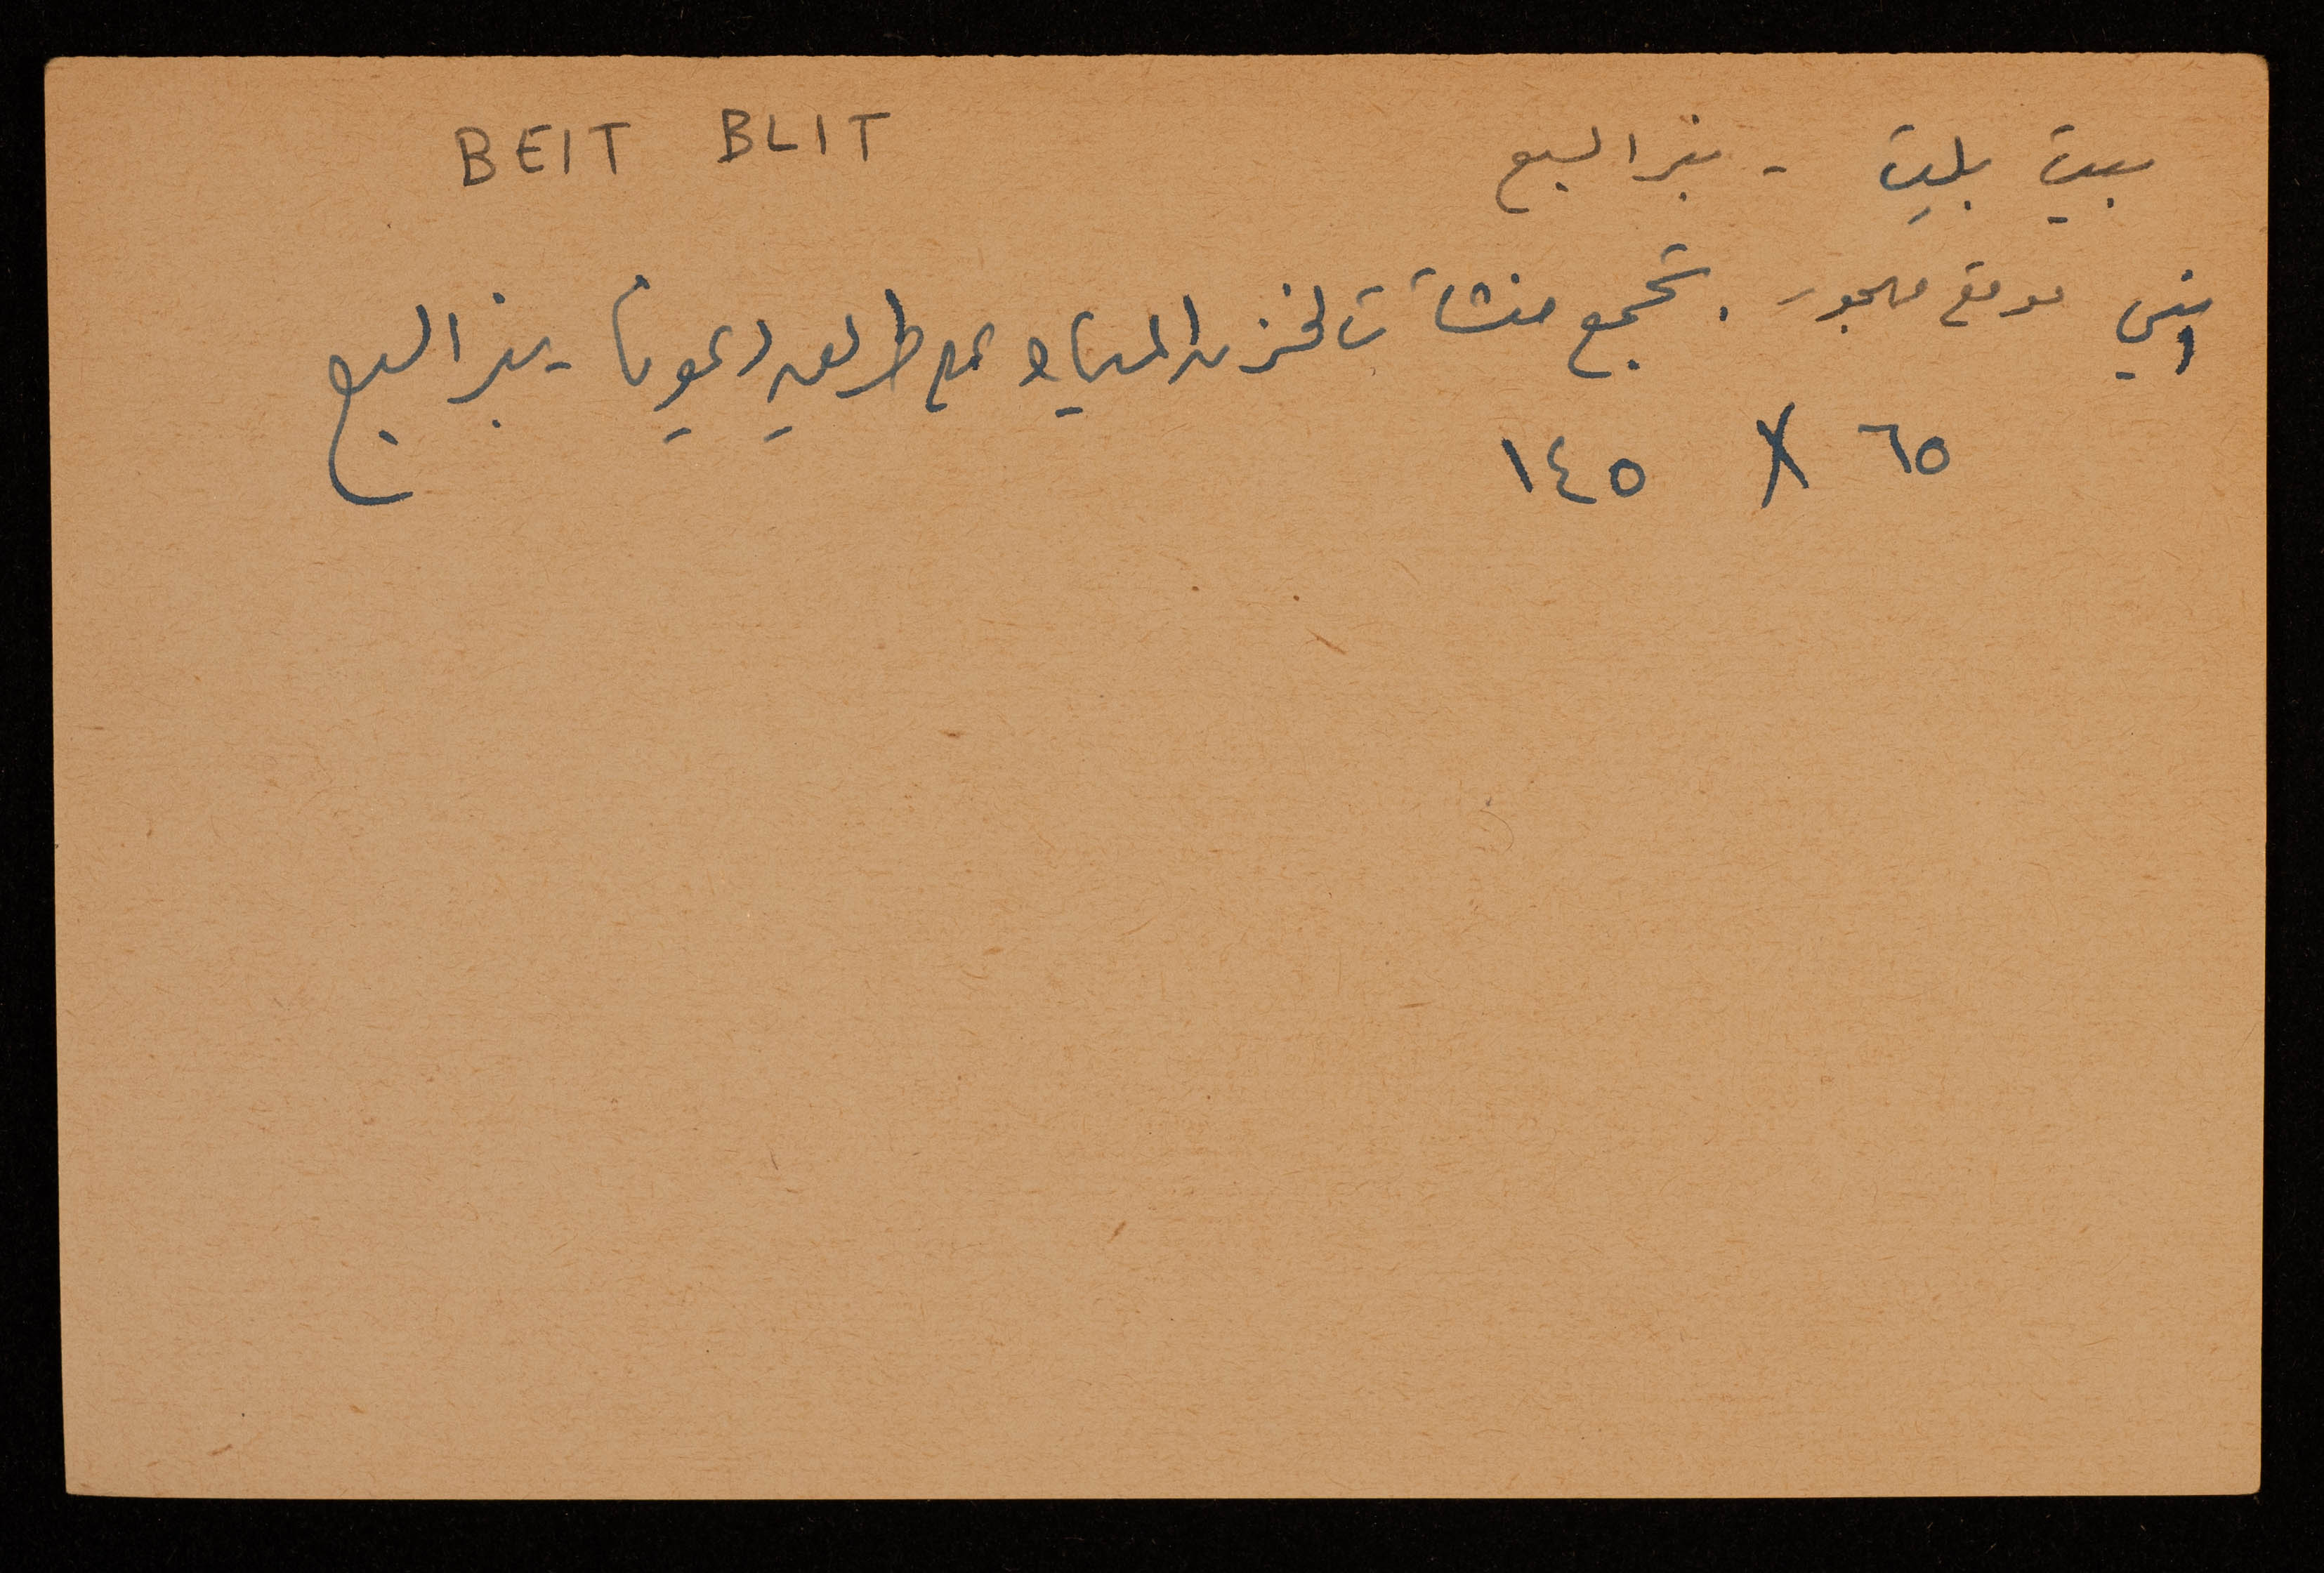 بيت بليت - بئر السبع BEIT BLIT
موقع مهجور . تجمع منشآت لخزن المياه على طريق ديمونا - بئر السبع
٦٥ X ١٤٥